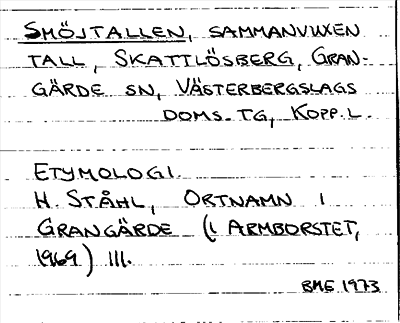 SMÖJTALLEN, SAMMANVUXEN
TALL, SKATTLÖSBERG, GRAN-
GÄRDE SN, VÄSTERBERGSLAGS
DOMS. TG, KOPP. L.
ETYMOLOGI.
H. STÅHL, ORTNAMN I
GRANGÄRDE (I ARMBORSTET,
1969) 111.
BME 1973